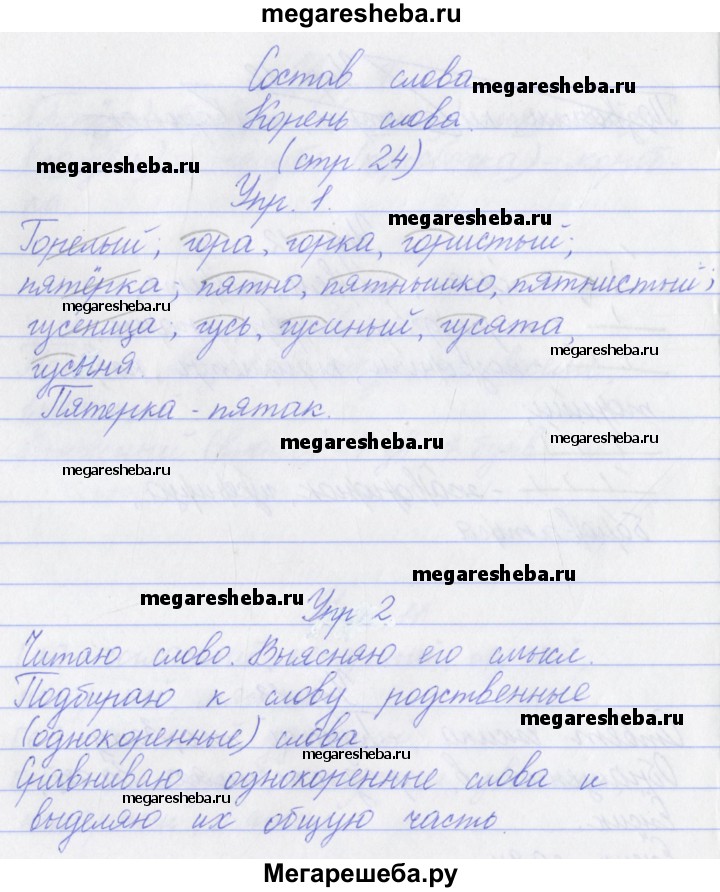 megaresheba.ru
Состав слова
megaresheba.ru
Корень слова.
(стр 24)
megaresheba.ru
Упр. 1.
megaresheba.ru
Горелый; гора, горка, гористый;
пятёрка; пятно, пятнышко, пятнистый;
megaresheba.ru
гусеница; гусь, гусиный, гусята,
megaresheba.ru
гусыня.
Пятерка - пятак.
megaresheba.ru
megaresheba.ru
megaresheba.ru
megaresheba.ru
Упр 2
Читаю слово. Выясняю его смысл.
Подбираю к слову родственные
megaresheba.ru
(однокоренные) слова
Сравниваю однокоренные слова и
megaresheba.ru
выделяю их общую часть.
Мегарешеба.ру